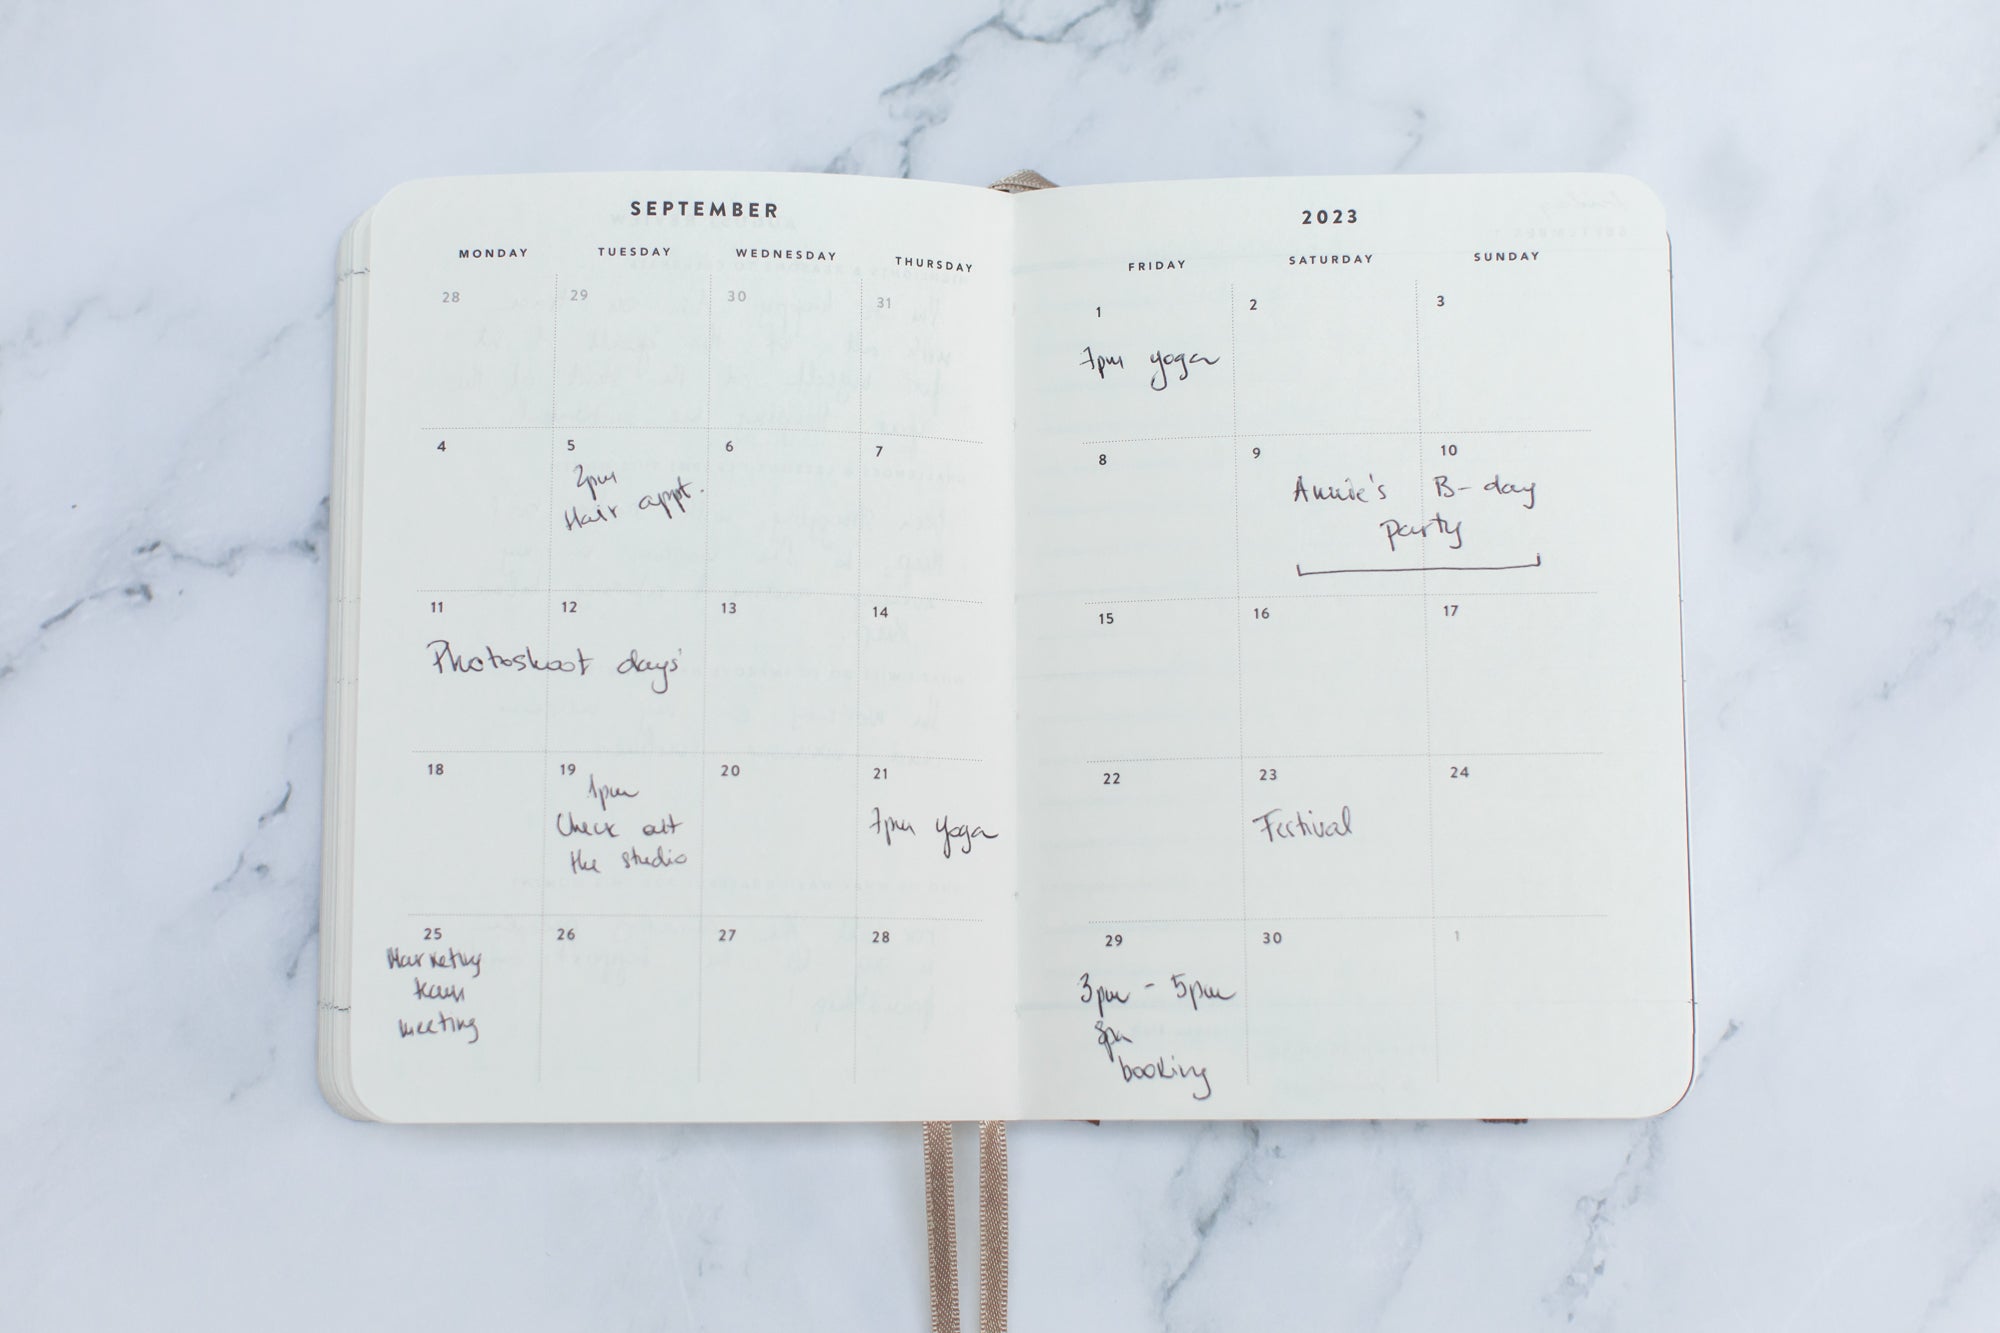 SEPTEMBER
2023
MONDAY TUESDAY WEDNESDAY THURSDAY FRIDAY SATURDAY SUNDAY
28 29 30 31 1 2 3
7pm yoga
4 5 6 7 8 9 10
2pm
Hair appt.
Annie's B-day
Party
11 12 13 14 15 16 17
Photoshoot days
18 19 20 21 22 23 24
1pm
Check out
the studio
7pm yoga
Festival
25 26 27 28 29 30 1
Marketing
team
meeting
3pm - 5pm
Spa
booking